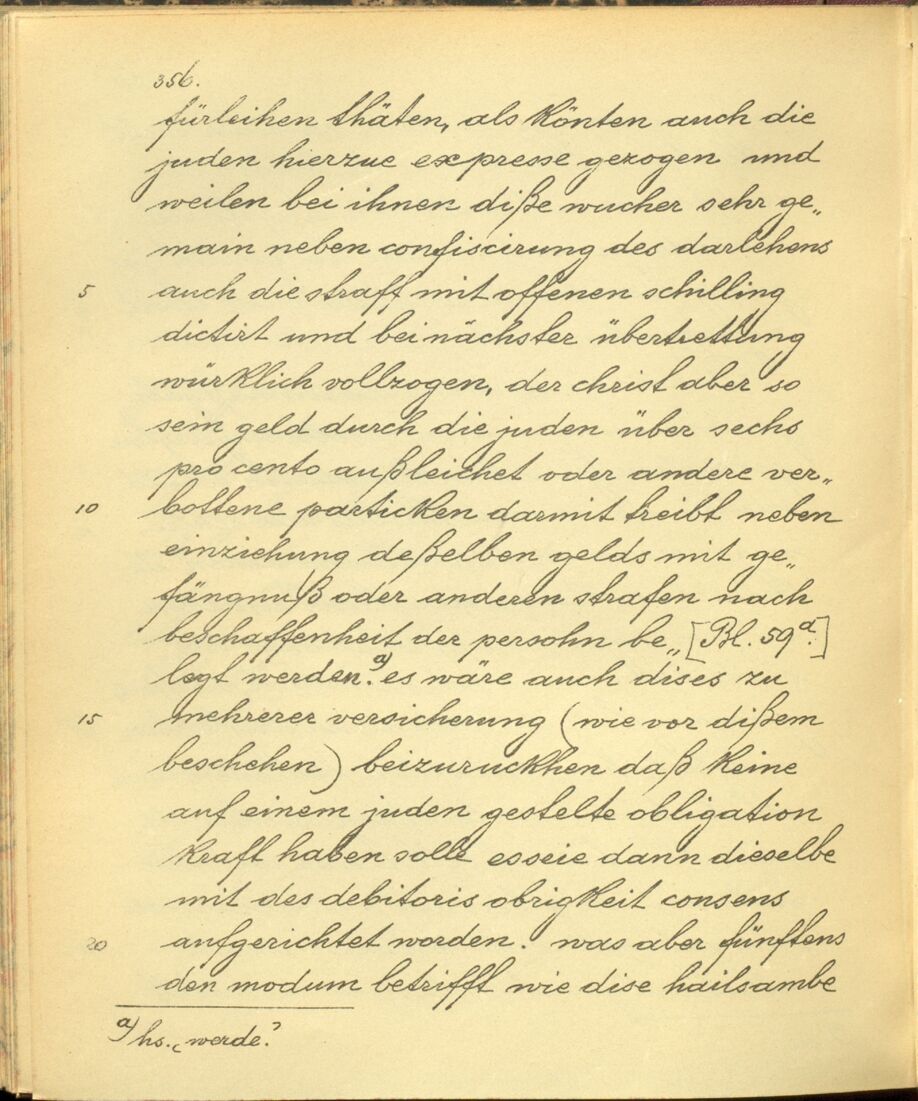 356.
fürleihen thäten, als könten auch die
juden hierzue expresse gezogen und
weilen bei ihnen diße wucher sehr ge„
main neben confiscirung des darlehens
5 auch die straff mit offenen schilling
dictirt und bei nächster übertrettung
würklich vollzogen, der christ aber so
sein geld durch die juden über sechs
pro cento außleichet oder andere ver„
10 bottene particken darmit treibt neben
einziehung deßelben gelds mit ge„
fängnuß oder anderen strafen nach
beschaffenheit der persohn be„ [Bl. 59a.]
legt werden.a) es wäre auch dises zu
15 mehrerer versicherung (wie vor dißem
beschehen) beizuruckhen daß keine
auf einem juden gestelte obligation
kraft haben solle es seie dann dieselbe
mit des debitoris obrigkeit consens
20 aufgerichtet worden. was aber fünftens
den modum betrifft wie dise hailsambe
a) hs. „werde."